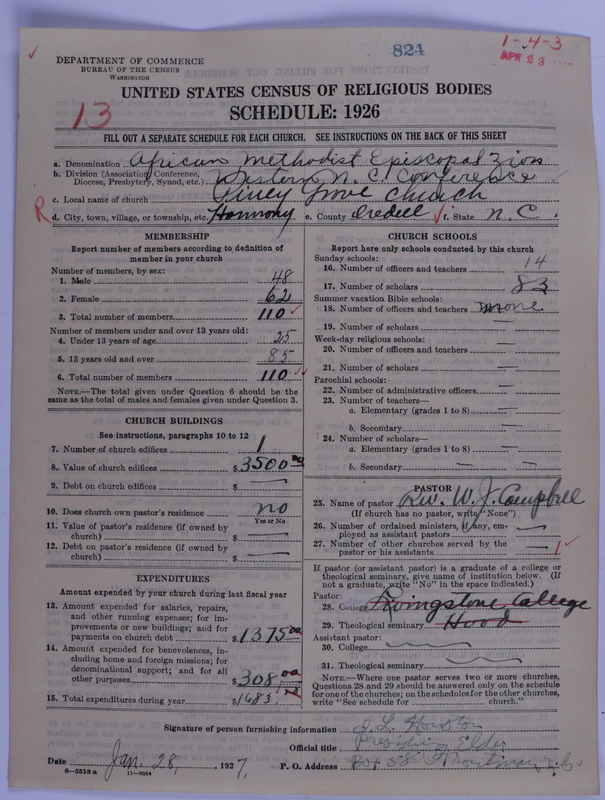 824
1-4-3
APR 23
DEPARTMENT OF COMMERCE
BUREAU OF THE CENSUS
WASHINGTON
UNITED STATES CENSUS OF RELIGIOUS BODIES
13
SCHEDULE: 1926
FILL OUT A SEPARATE SCHEDULE FOR EACH CHURCH. SEE INSTRUCTIONS ON THE BACK OF THIS SHEET
a. Denomination African Methodist Episcopal Zion
b. Division (Association, Conference, Diocese, Presbytery, Synod, etc.) Western N. C. Conference
c. Local name of church Piney Grove Church
R d. City, town, village, or township, etc. Harmony e. County Iredell f. State N. C.
MEMBERSHIP
Report number of members according to definition of
member in your church
Number of members, by sex:
1. Male 48
2. Female 62
3. Total number of members 110
Number of members under and over 13 years old:
4. Under 13 years of age 25
5. 13 years old and over 85
6. Total number of members 110
NOTE.—The total given under Question 6 should be the
same as the total of males and females given under Question 3.
CHURCH BUILDINGS
See instructions, paragraphs 10 to 12
7. Number of church edifices 1
8. Value of church edifices $3500 00
9. Debt on church edifices $ —
10. Does church own pastor's residence no
Yes or No
11. Value of pastor's residence (if owned by
church) $ —
12. Debt on pastor's residence (if owned by
church) $ —
EXPENDITURES
Amount expended by your church during last fiscal year
13. Amount expended for salaries, repairs,
and other running expenses; for im-
provements or new buildings; and for
payments on church debt $1375 00
14. Amount expended for benevolences, in-
cluding home and foreign missions; for
denominational support; and for all
other purposes $308 00
15. Total expenditures during year $1683
CHURCH SCHOOLS
Report here only schools conducted by this church
Sunday schools:
16. Number of officers and teachers 14
17. Number of scholars 83
Summer vacation Bible schools:
18. Number of officers and teachers none
19. Number of scholars —
Week-day religious schools:
20. Number of officers and teachers —
21. Number of scholars —
Parochial schools:
22. Number of administrative officers —
23. Number of teachers—
a. Elementary (grades 1 to 8) —
b. Secondary —
24. Number of scholars—
a. Elementary (grades 1 to 8) —
b. Secondary — —
PASTOR
25. Name of pastor Rev. W. J. Campbell
(If church has no pastor, write "None")
26. Number of ordained ministers, if any, em-
ployed as assistant pastors —
27. Number of other churches served by the
pastor or his assistants 1
If pastor (or assistant pastor) is a graduate of a college or
theological seminary, give name of institution below. (If
not a graduate, write "No" in the space indicated.)
Pastor:
28. College Livingstone College
29. Theological seminary Hood
Assistant pastor:
30. College
31. Theological seminary
NOTE.—Where one pastor serves two or more churches,
Questions 28 and 29 should be answered only on the schedule
for one of the churches; on the schedules for the other churches,
write "See schedule for church."
Signature of person furnishing information Houston
Official title Presiding Elder
Date Jan. 28, 1927, P. O. Address Box 58 N.C.
8—5518 a 11—9034